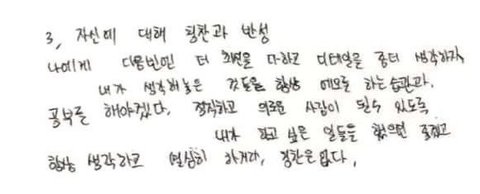 3, 자신에 대해 칭찬과 반성
나에게 다음번엔 더 최선을 다하고 디테일을 좀더 생각하자,
내가 생각해놓은 것들을 항상 메모를 하는 습관과,
공부를 해야겠다. 정직하고 의로운 사람이 될수 있도록
내가 하고 싶은 일들을 했으면 좋겠고
항상 생각하고 열심히 하거라, 칭찬은없다,